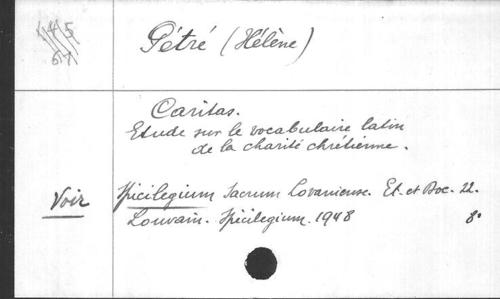 Pétré (Hélène)
Caritas.
Etude sur le vocabulaire latin
de la charité chrétienne.
Voir Spicilegium Sacrum Lovaniense. Et. et Doc. 22.
Louvain. Spicilegium. 1948 8°